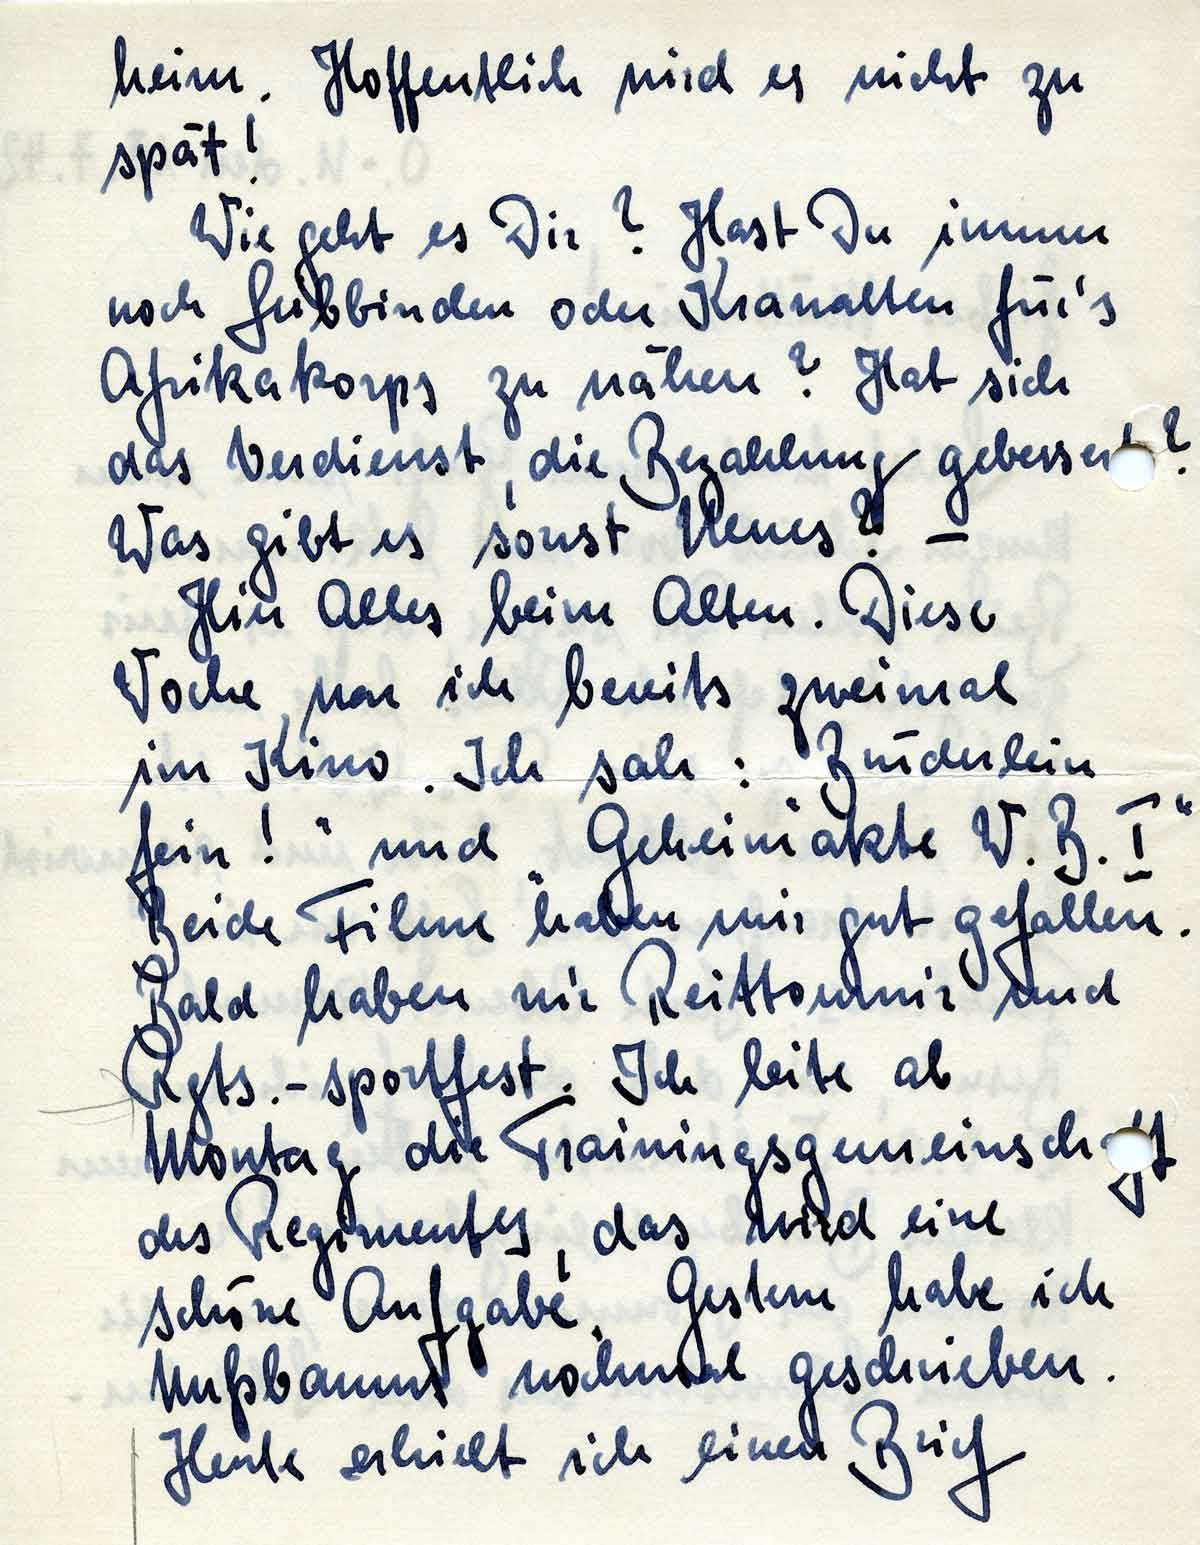 heim. Hoffentlich wird es nicht zu
spät!
Wie geht es Dir? Hast Du immer
noch Leibbinden oder Krawatten für's
Afrikakorps zu nähen? Hat sich
das Verdienst, die Bezahlung gebessert?
Was gibt es sonst Neues? –
Hier Alles beim Alten. Diese
Woche war ich bereits zweimal
im Kino. Ich sah: "Brüderlein
fein!" und "Geheimakte W.B. I"
Beide Filme haben mir gut gefallen.
Bald haben wir Reitturnier und
Rgts.-sportfest. Ich leite ab
Montag die Trainingsgemeinschaft
des Regimentes, das wird eine
schöne Aufgabe. Gestern habe ich
Nußbaums nochmal geschrieben.
Heute erhielt ich einen Brief